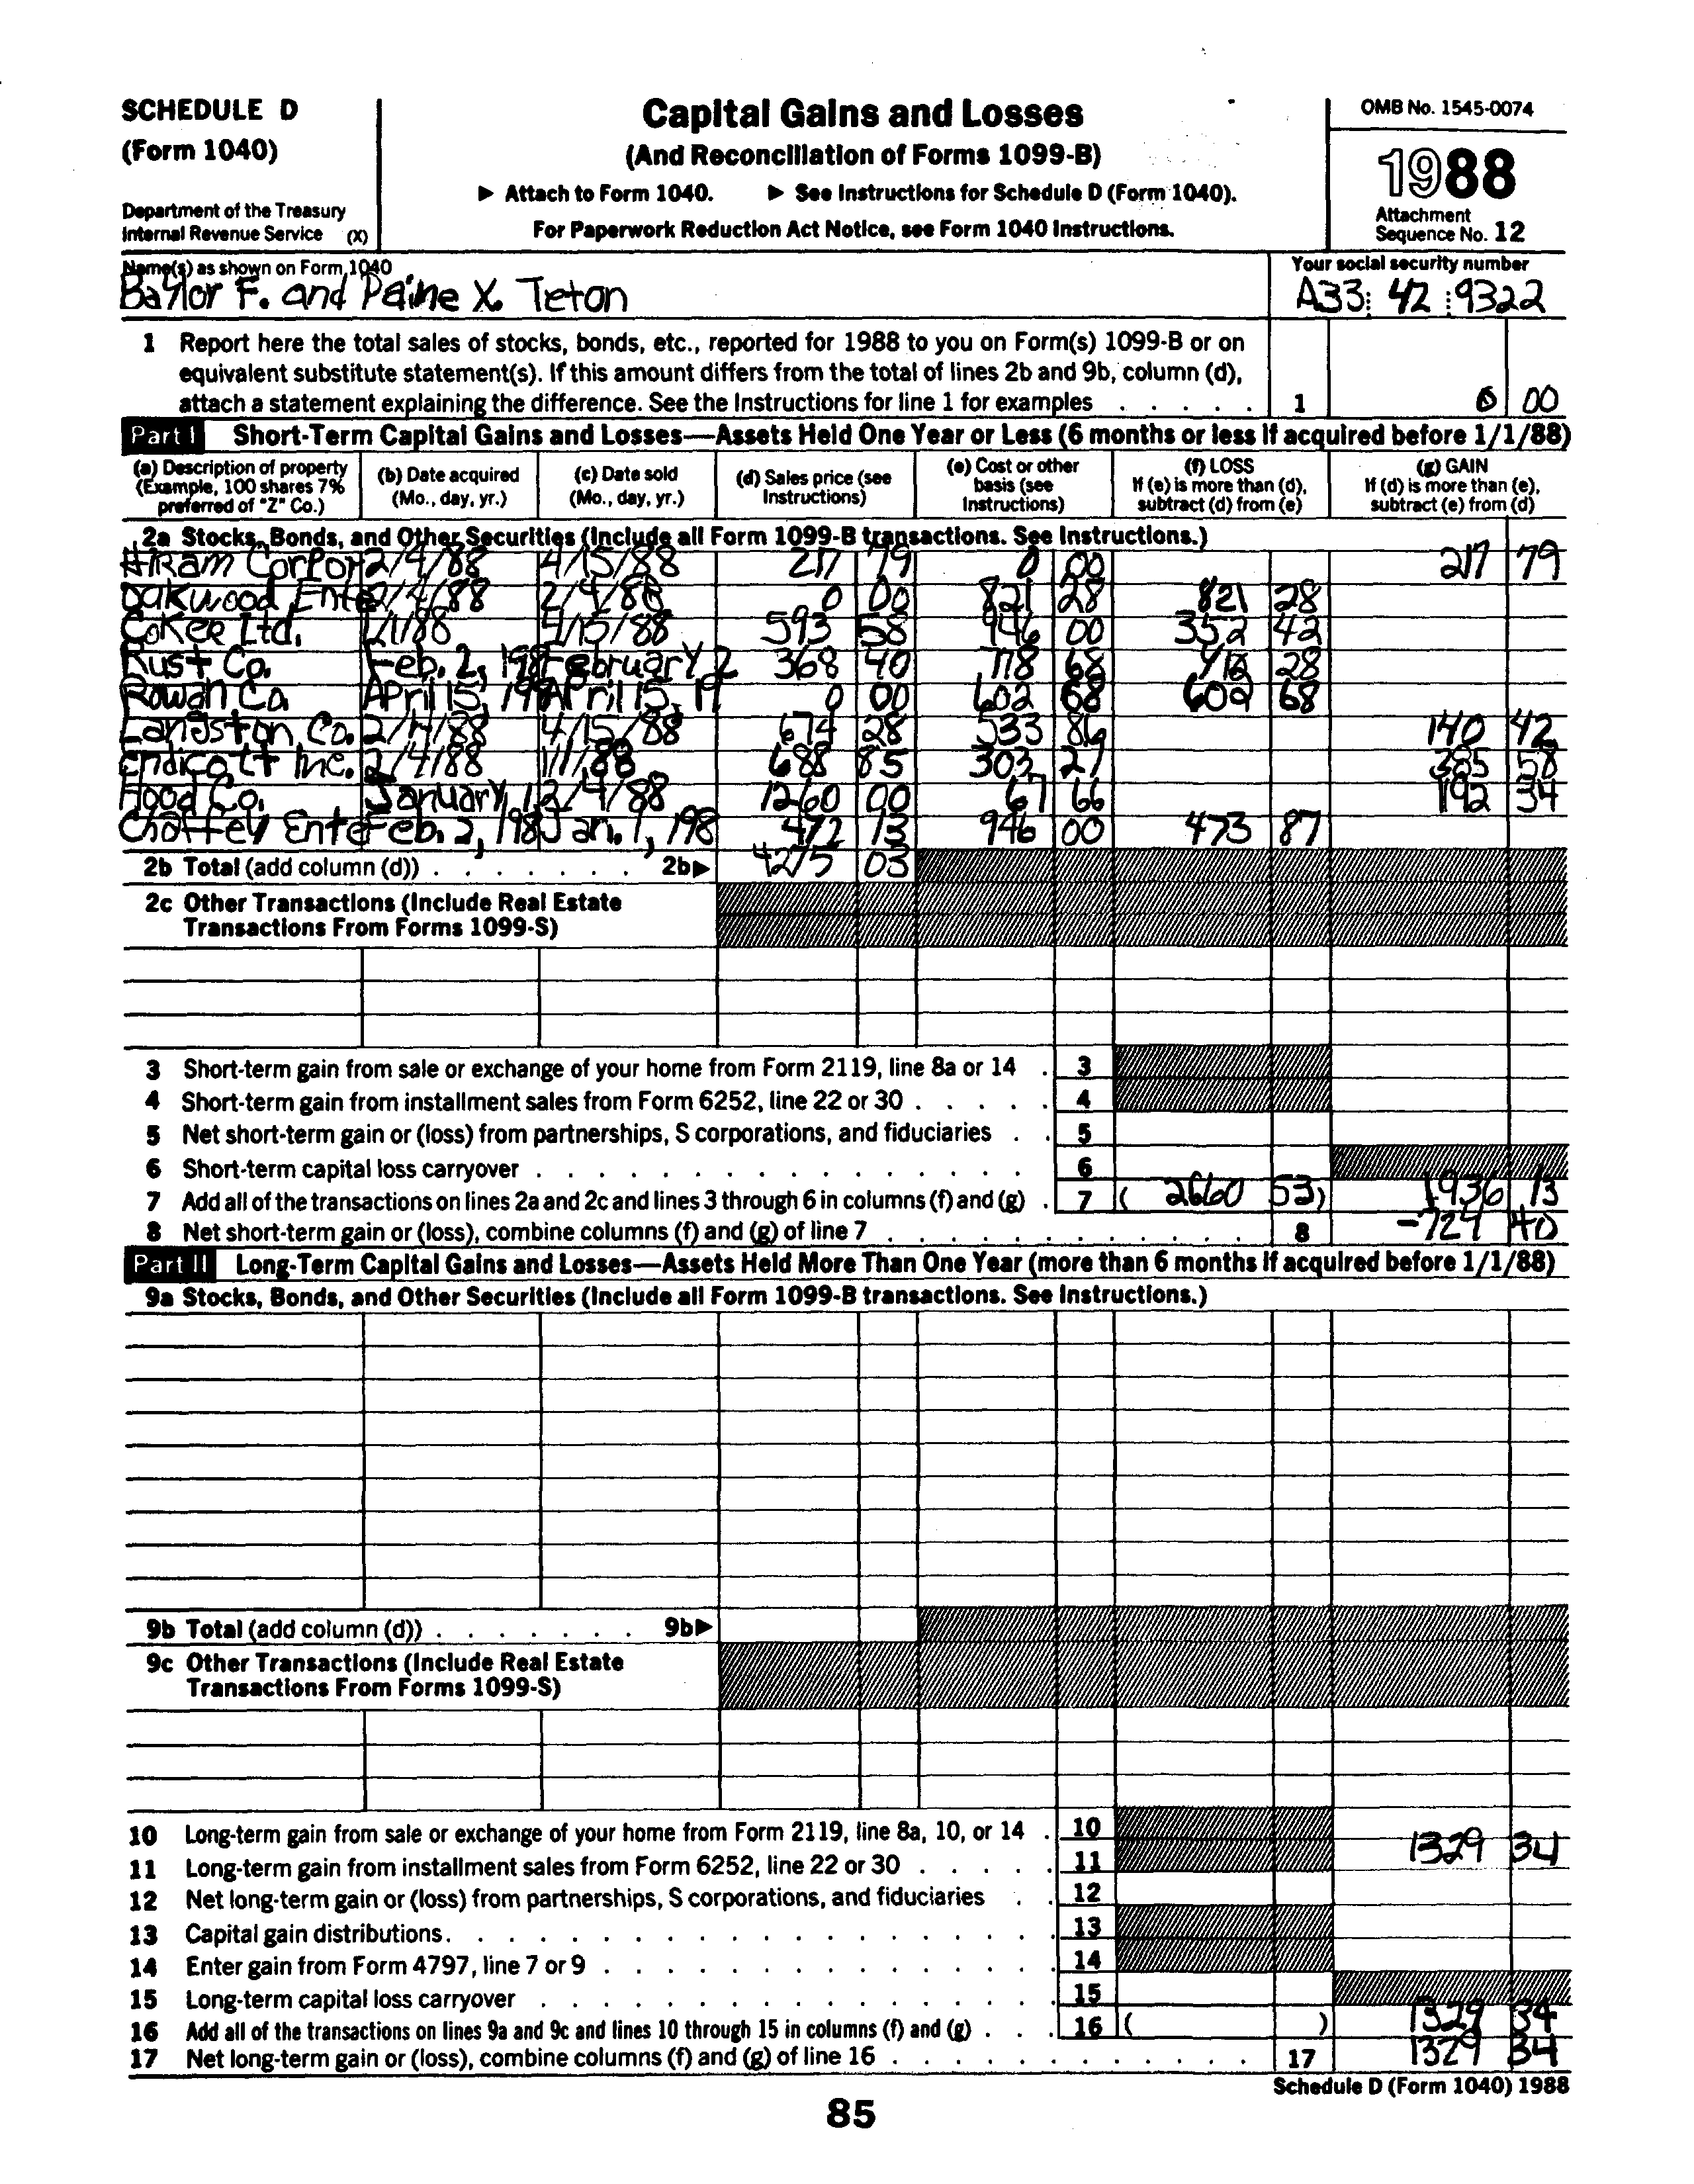 SCHEDULE D
(Form 1040)
Department of the Treasury
Internal Revenue Service (X)
Capital Gains and Losses
(And Reconciliation of Forms 1099-B)
▶ Attach to Form 1040. ▶ See Instructions for Schedule D (Form 1040).
For Paperwork Reduction Act Notice, see Form 1040 Instructions.
OMB No. 1545-0074
1988
Attachment
Sequence No. 12
Name(s) as shown on Form 1040
Baylor F. and Paine X. Teton
Your social security number
A33 42 9322
1 Report here the total sales of stocks, bonds, etc., reported for 1988 to you on Form(s) 1099-B or on
equivalent substitute statement(s). If this amount differs from the total of lines 2b and 9b, column (d),
attach a statement explaining the difference. See the Instructions for line 1 for examples . . . . . 1 0 00
Part I Short-Term Capital Gains and Losses—Assets Held One Year or Less (6 months or less if acquired before 1/1/88)
(a) Description of property
(Example, 100 shares 7%
preferred of "Z" Co.)
(b) Date acquired
(Mo., day, yr.)
(c) Date sold
(Mo., day, yr.)
(d) Sales price (see
Instructions)
(e) Cost or other
basis (see
Instructions)
(f) LOSS
If (e) is more than (d),
subtract (d) from (e)
(g) GAIN
If (d) is more than (e),
subtract (e) from (d)
2a Stocks, Bonds, and Other Securities (Include all Form 1099-B transactions. See Instructions.)
Hiram Corpor 2/4/88 4/15/88 217 79 0 00 217 79
Oakwood Ente 2/4/88 2/4/88 0 00 821 28 821 28
Coker Ltd. 1/1/88 4/15/88 593 58 946 00 352 42
Rust Co. Feb. 2, 198 February 2 368 40 778 68 28
Rowan Co. April 15, 19 April 15, 19 0 00 602 68 602 68
Langston Co. 2/4/88 4/15/88 674 28 533 86 140 42
Endicott Inc. 2/4/88 1/1/88 688 85 303 27 385 58
Hood Co. January 1, 2/4/88 1260 00 67 66 1192 34
Chaffey Ente Feb. 2, 198 Jan. 1, 198 472 13 946 00 473 87
2b Total (add column (d)) . . . . . . . 2b▶ 4275 03
2c Other Transactions (Include Real Estate
Transactions From Forms 1099-S)
3 Short-term gain from sale or exchange of your home from Form 2119, line 8a or 14 . 3
4 Short-term gain from installment sales from Form 6252, line 22 or 30 . . . . . 4
5 Net short-term gain or (loss) from partnerships, S corporations, and fiduciaries . . 5
6 Short-term capital loss carryover . . . . . . . . . . . . . . . 6
7 Add all of the transactions on lines 2a and 2c and lines 3 through 6 in columns (f) and (g) . 7 ( 2660 53) 1936 13
8 Net short-term gain or (loss), combine columns (f) and (g) of line 7 . . . . . . . . . . . 8 -724 40
Part II Long-Term Capital Gains and Losses—Assets Held More Than One Year (more than 6 months if acquired before 1/1/88)
9a Stocks, Bonds, and Other Securities (Include all Form 1099-B transactions. See Instructions.)
9b Total (add column (d)) . . . . . . . 9b▶
9c Other Transactions (Include Real Estate
Transactions From Forms 1099-S)
10 Long-term gain from sale or exchange of your home from Form 2119, line 8a, 10, or 14 . 10 1329 34
11 Long-term gain from installment sales from Form 6252, line 22 or 30 . . . . . 11
12 Net long-term gain or (loss) from partnerships, S corporations, and fiduciaries . . 12
13 Capital gain distributions. . . . . . . . . . . . . . . . . . 13
14 Enter gain from Form 4797, line 7 or 9 . . . . . . . . . . . . . 14
15 Long-term capital loss carryover . . . . . . . . . . . . . . . 15
16 Add all of the transactions on lines 9a and 9c and lines 10 through 15 in columns (f) and (g) . . . 16 ( ) 1329 34
17 Net long-term gain or (loss), combine columns (f) and (g) of line 16 . . . . . . . . . . . 17 1329 34
Schedule D (Form 1040) 1988
85